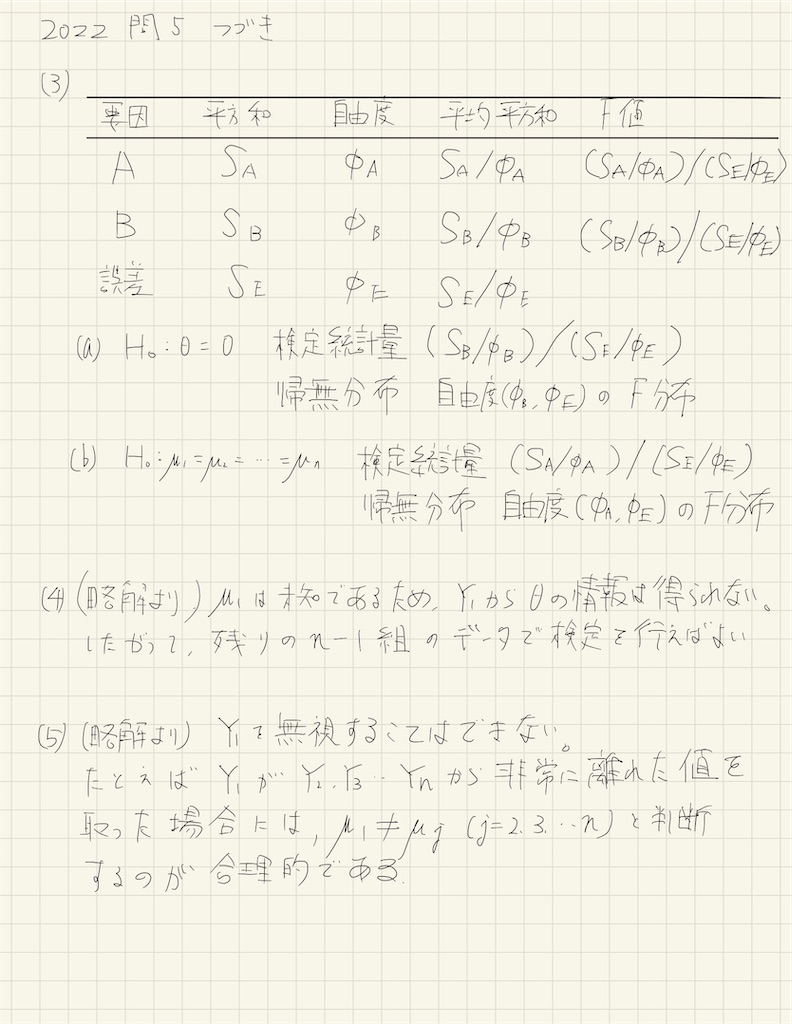 2022 問5 つづき
(3)
要因 平方和 自由度 平均平方和 F値
A S_A φ_A S_A/φ_A (S_A/φ_A)/(S_E/φ_E)
B S_B φ_B S_B/φ_B (S_B/φ_B)/(S_E/φ_E)
誤差 S_E φ_E S_E/φ_E
(a) H₀:θ=0 検定統計量 (S_B/φ_B)/(S_E/φ_E)
帰無分布 自由度(φ_B, φ_E)の F分布
(b) H₀:μ₁=μ₂=…=μn 検定統計量 (S_A/φ_A)/(S_E/φ_E)
帰無分布 自由度(φ_A, φ_E)のF分布
(4) (略解より) μ₁は未知であるため、Y₁からθの情報は得られない。
したがって、残りのn-1組のデータで検定を行えばよい
(5) (略解より) Y₁を無視することはできない。
たとえば Y₁が Y₂,Y₃…Ynから非常に離れた値を
取った場合には, μ₁≠μj (j=2.3.…n)と判断
するのが合理的である.